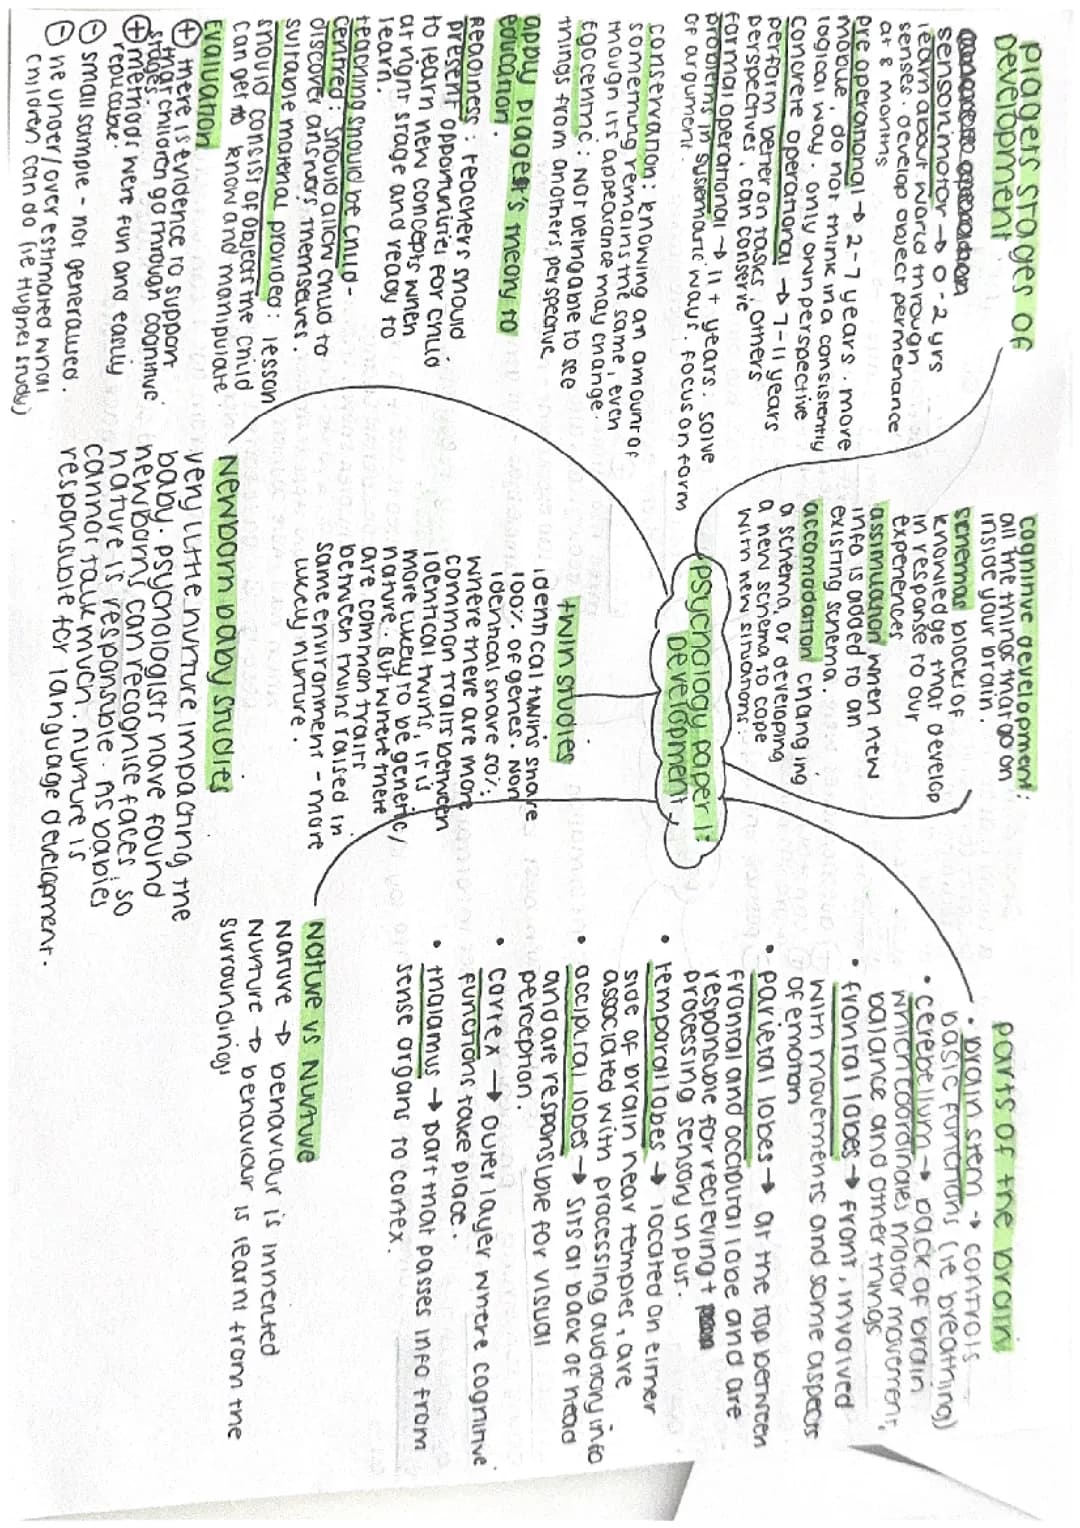 psychology paper 1:
Development
piagets stages of
Development
sensorimotor → 0-2 yrs
learn about world through
senses. develop object permenance
at 8 months
pre operational → 2-7 years. more
mobile, do not think in a consistently
logical way. only own perspective
Concrete operational → 7-11 years
perform better on tasks, others
perspectives, can conserve
formal operational → 11+ years. solve
problems in systematic ways. focus on form
of argument.
conservation: knowing an amount of
something remains the same, even
though its appearance may change.
Egocentric: not being able to see
things from anothers perspective
apply piaget's theory to
education.
Readiness: teachers should
present opportunities for child
to learn new concepts when
at right stage and ready to
learn.
teaching should be child-
centred: should allow child to
discover answers themselves.
suitable material provided: lesson
should consist of object the child
can get to know and manipulate
Evaluation
⊕ there is evidence to support
that children go through cognitive
stages.
⊕ methods were fun and easily
replicable.
⊖ small sample - not generalised.
⊖ he under/over estimated what
children can do (ie Hughes study)
cognitive development:
all the things that go on
inside your brain.
schemas blocks of
knowledge that develop
in response to our
experiences
assimilation when new
info is added to an
existing schema.
accomodation changing
a schema, or developing
a new schema to cope
with new situations
twin studies
identical twins share
100% of genes. Non
identical share 50%.
where there are more
common traits between
identical twins, it is
more likely to be genetic/
nature. But where there
are common traits
between twins raised in
same environment - more
likely nurture.
Newborn baby studies
very little nurture impacting the
baby. psychologists have found
newborns can recognise faces, so
nature is responsible. As babies
cannot talk much, nurture is
responsible for language development.
parts of the brain
• brain stem → controls
basic functions (ie breathing)
• cerebellum → back of brain
which coordinates motor movement,
balance and other things
• frontal lobes → front, involved
with movements and some aspects
of emotion
• parietal lobes → at the top between
frontal and occipital lobe and are
responsible for recieving +
processing sensory input.
• temporal lobes → located on either
side of brain near temples, are
associated with processing auditory info
• occipital lobes → sits at back of head
and are responsible for visual
perception.
• cortex → outer layer where cognitive
functions take place.
• thalamus → part that passes info from
sense organs to cortex.
Nature vs Nurture
Nature → behaviour is inherited
Nurture → behaviour is learnt from the
surroundings